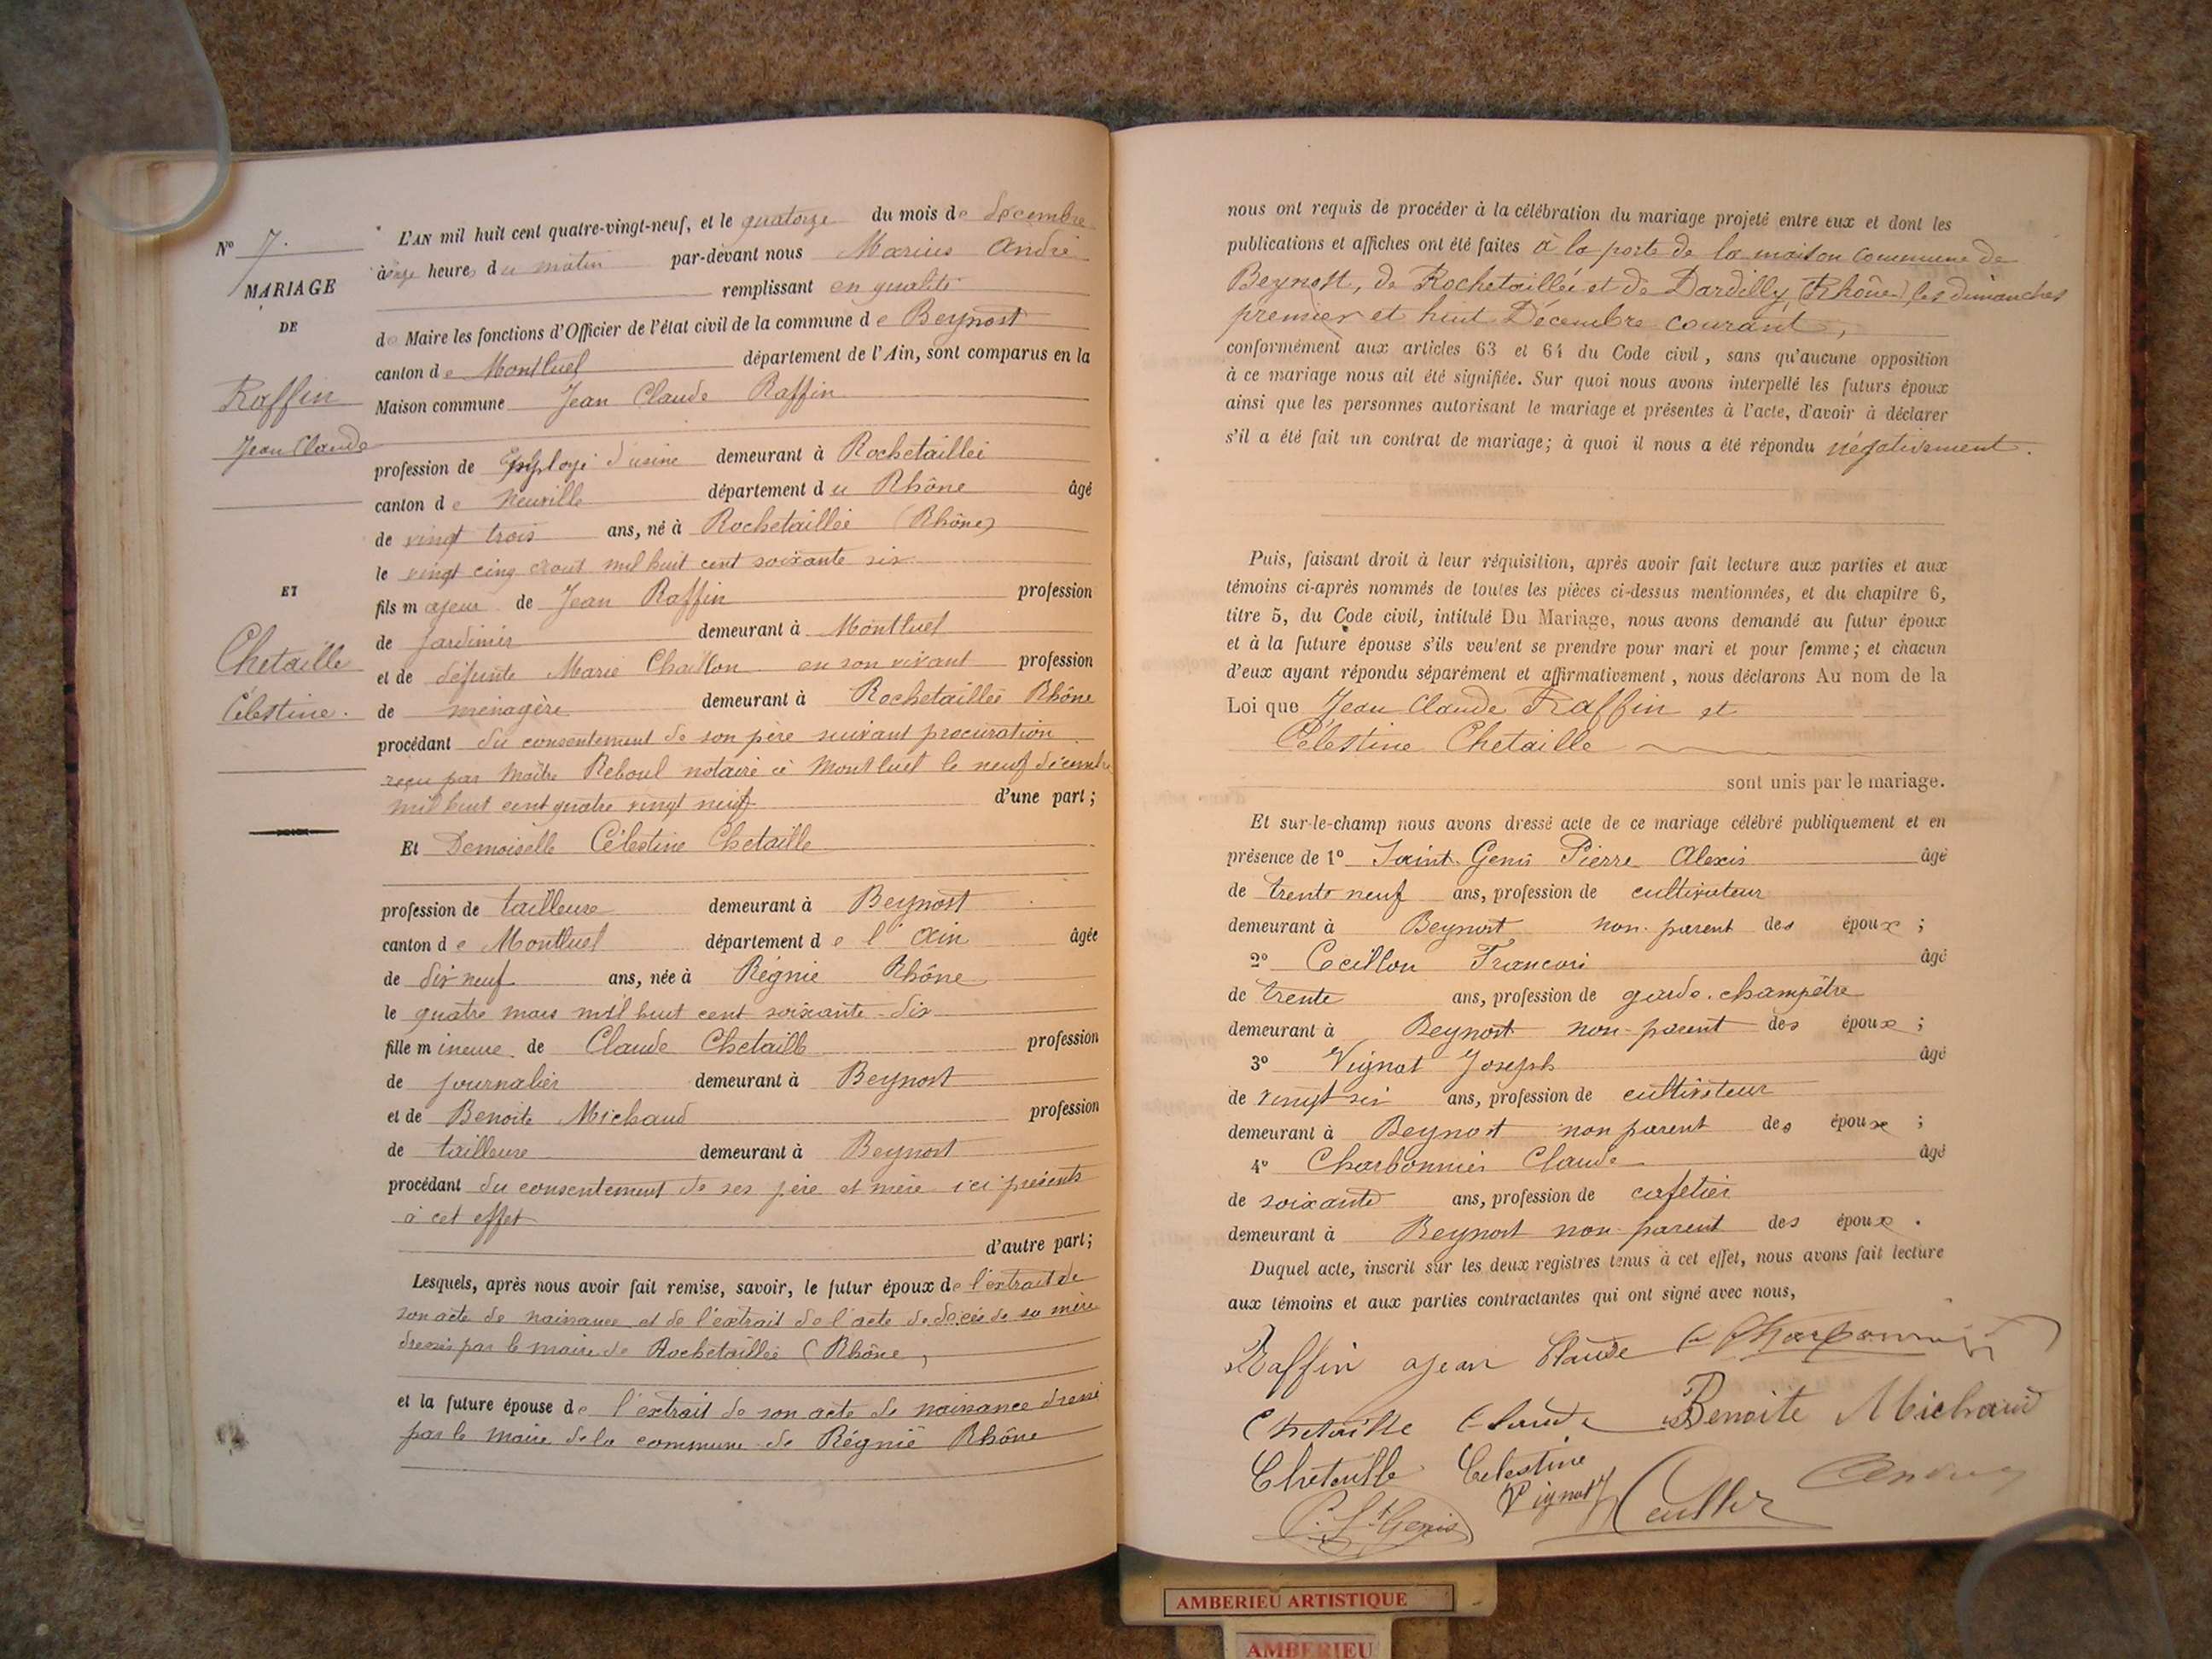 N° 7.
MARIAGE
DE
Raffin
Jean Claude
ET
Chetaille
Célestine.
L'AN mil huit cent quatre-vingt-neuf, et le quatorze du mois de décembre
à onze heures du matin par-devant nous Marius André
remplissant en qualité
de Maire les fonctions d'Officier de l'état civil de la commune de Beynost
canton de Montluel département de l'Ain, sont comparus en la
Maison commune Jean Claude Raffin
profession de Employé d'usine demeurant à Rochetaillée
canton de Neuville département du Rhône âgé
de vingt trois ans, né à Rochetaillée (Rhône)
le vingt cinq août mil huit cent soixante six
fils majeur de Jean Raffin profession
de jardinier demeurant à Montluel
et de défunte Marie Chaillon en son vivant profession
de ménagère demeurant à Rochetaillée Rhône
procédant du consentement de son père suivant procuration
reçu par Maître Reboul notaire à Montluel le neuf décembre
mil huit cent quatre vingt neuf d'une part;
Et Demoiselle Célestine Chetaille
profession de tailleuse demeurant à Beynost
canton de Montluel département de l'Ain âgée
de dix neuf ans, née à Régnié Rhône
le quatre mars mil huit cent soixante-dix
fille mineure de Claude Chetaille profession
de journalier demeurant à Beynost
et de Benoite Michaud profession
de tailleuse demeurant à Beynost
procédant du consentement de ses père et mère ici présents
à cet effet
d'autre part;
Lesquels, après nous avoir fait remise, savoir, le futur époux de l'extrait de
son acte de naissance et de l'extrait de l'acte de décès de sa mère
dressés par le maire de Rochetaillée (Rhône)
et la future épouse de l'extrait de son acte de naissance dressé
par le maire de la commune de Régnié Rhône
nous ont requis de procéder à la célébration du mariage projeté entre eux et dont les
publications et affiches ont été faites à la porte de la maison commune de
Beynost, de Rochetaillée et de Dardilly (Rhône) les dimanches
premier et huit Décembre courant,
conformément aux articles 63 et 64 du Code civil, sans qu'aucune opposition
à ce mariage nous ait été signifiée. Sur quoi nous avons interpellé les futurs époux
ainsi que les personnes autorisant le mariage et présentes à l'acte, d'avoir à déclarer
s'il a été fait un contrat de mariage; à quoi il nous a été répondu négativement.
Puis, faisant droit à leur réquisition, après avoir fait lecture aux parties et aux
témoins ci-après nommés de toutes les pièces ci-dessus mentionnées, et du chapitre 6,
titre 5, du Code civil, intitulé Du Mariage, nous avons demandé au futur époux
et à la future épouse s'ils veulent se prendre pour mari et pour femme; et chacun
d'eux ayant répondu séparément et affirmativement, nous déclarons Au nom de la
Loi que Jean Claude Raffin et
Célestine Chetaille
sont unis par le mariage.
Et sur-le-champ nous avons dressé acte de ce mariage célébré publiquement et en
présence de 1° Saint-Genis Pierre Alexis âgé
de trente neuf ans, profession de cultivateur
demeurant à Beynost non-parent des époux;
2° Cecillon Francois âgé
de trente ans, profession de garde-champêtre
demeurant à Beynost non-parent des époux;
3° Vignat Joseph âgé
de vingt six ans, profession de cultivateur
demeurant à Beynost non parent des époux;
4° Charbonnier Claude âgé
de soixante ans, profession de cafetier
demeurant à Beynost non-parent des époux.
Duquel acte, inscrit sur les deux registres tenus à cet effet, nous avons fait lecture
aux témoins et aux parties contractantes qui ont signé avec nous,
Raffin Jean Claude C Charbonnier
Chetaille Claude Benoite Michaud
Chetaille Celestine
Vignat
P. St Genis
AMBERIEU ARTISTIQUE
AMBERIEU